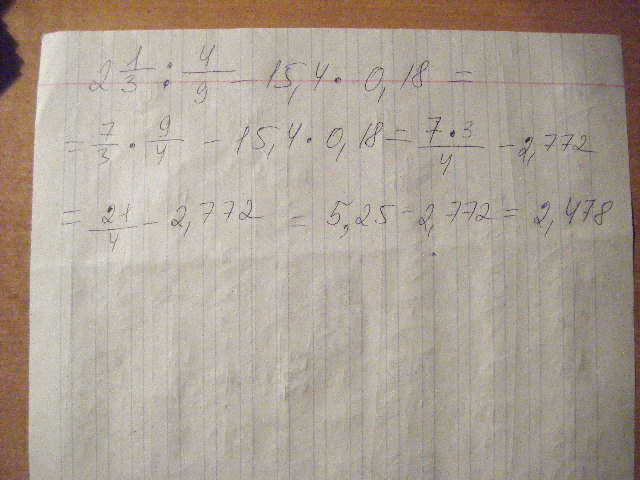 2 1/3 : 4/9 - 15,4 · 0,18 =
= 7/3 · 9/4 - 15,4 · 0,18 = 7·3/4 - 2,772
= 21/4 - 2,772 = 5,25 - 2,772 = 2,478